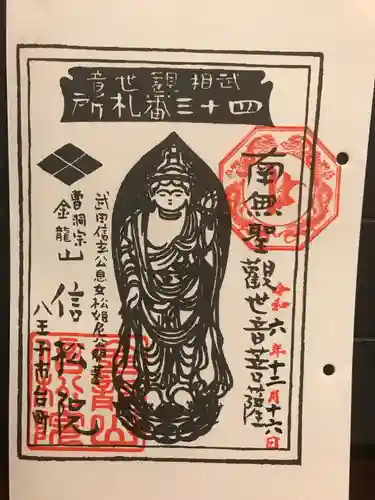 武相觀世音
四十三番札所
南無聖觀世音菩薩
令和六年十二月十六日
武田信玄公息女松姫尼公開基
曹洞宗
金龍山 信松院
八王子市台町